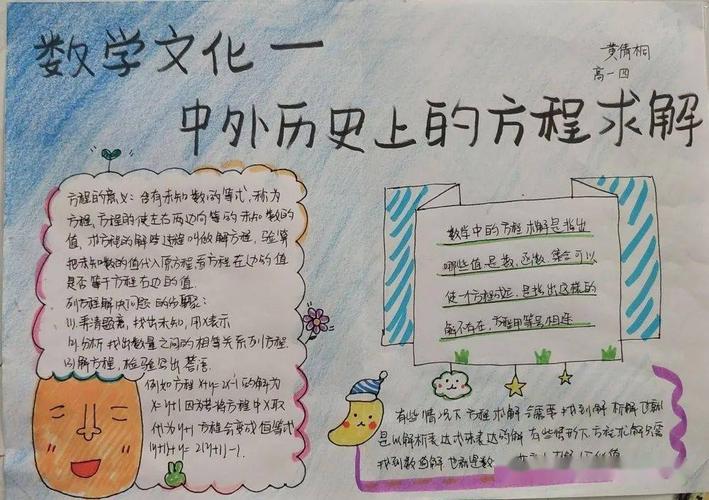 数学文化一
黄倩桐
高一四
中外历史上的方程求解
方程的意义：含有未知数的等式，称为
方程，方程的使左右两边向等的未知数的
值，求方程的解的过程叫做解方程，验算
把未知数的值代入原方程，看方程左边的值
是否等于方程右边的值.
列方程解决问题的步骤：
(1)弄清题意，找出未知，用X表示
(2)分析找出数量之间的相等关系列方程
(3)解方程，检验写出答语.
例如方程x+y=2x-1的解为
x=y+1因为若将方程中X取
代为y+1方程会变成值等式
(y+1)+y=2(y+1)-1.
数学中的方程求解是指找出
哪些值是数、函数、集合可以
使一个方程成立，是指出这样的
解不存在，方程用等号相连
有些情况下方程求解会需要找到解析解也就
是以解析表达式来表达的解有些情形下方程求解只需
找到数值解也就是数